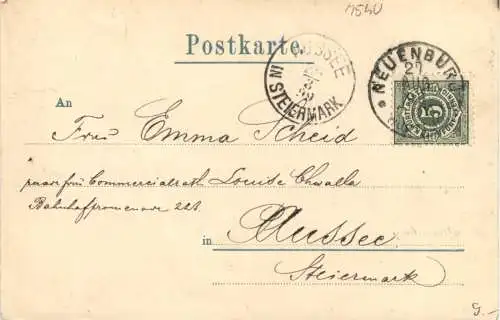 1540
Postkarte.
AUSSEE
IN STEIERMARK
NEUENBURG
27
AUG
5
An
Frau Emma Scheid
Commercialrath Louise Chwalla
Bahnhofpromenade 221.
in Aussee
Steiermark
G.-